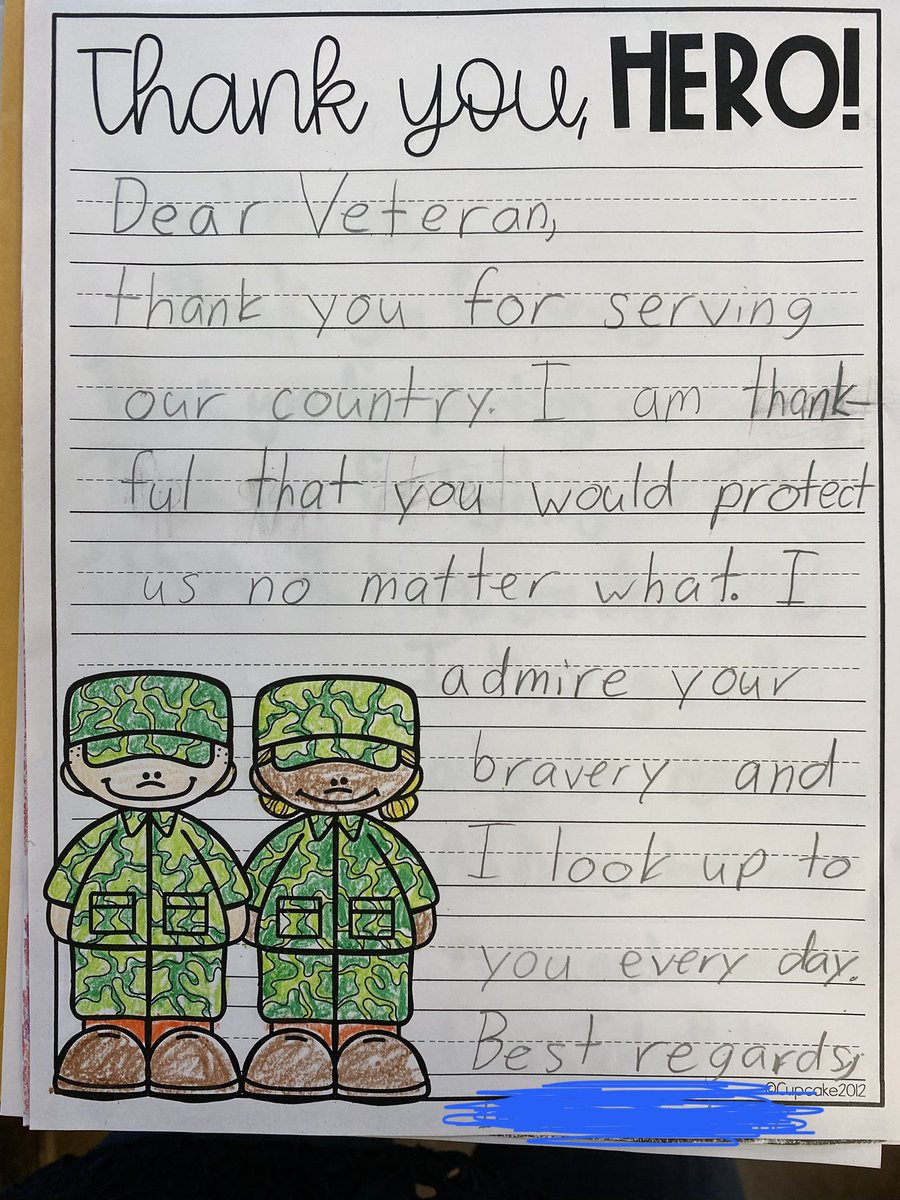 Thank you, HERO!
Dear Veteran,
thank you for serving
our country. I am thank-
ful that you would protect
us no matter what. I
admire your
bravery and
I look up to
you every day.
Best regards,
©Cupcake2012